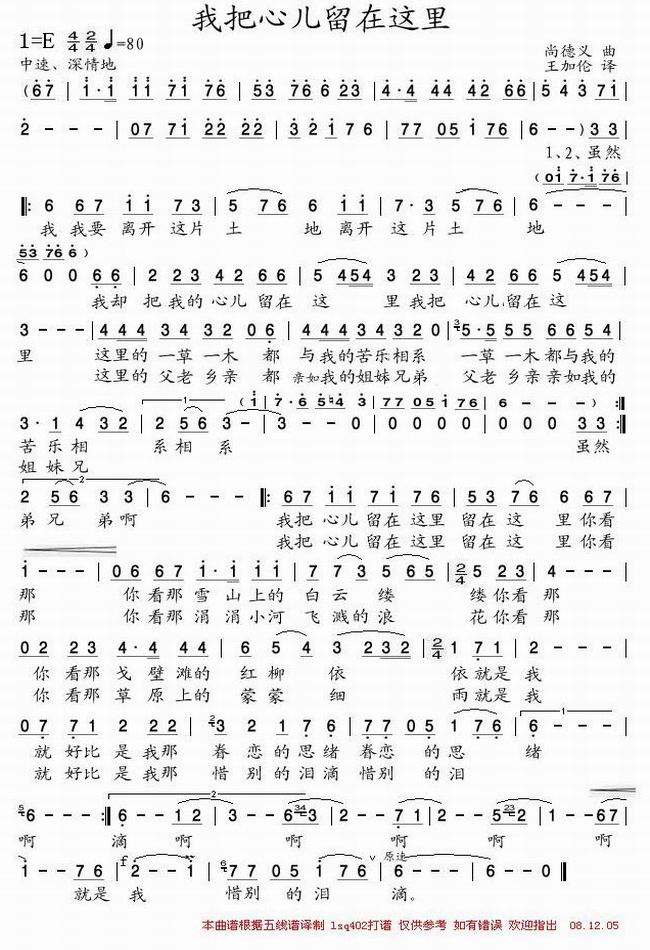 我把心儿留在这里
1=E 4/4 2/4 ♩=80
中速、深情地
尚德义 曲
王加伦 译
( 67 | 1·1 11 71 76 | 53 76 6 23 | 4·4 44 42 66 | 5 4 3 71 |
2 - - - | 07 71 22 22 | 3 2 1 7 6 | 77 05 1 76 | 6 - - ) 3 3 |
1、2、虽然
( 01 7·1 76 |
‖: 6 67 11 73 | 5 76 6 11 | 7· 3 5 76 | 6 - - - |
我 我要 离开 这片 土 地 离开 这 片 土 地
53 76 6 )
6 0 0 66 | 2 23 42 66 | 5 454 3 23 | 42 66 5 454 |
我却 把 我的 心儿 留在 这 里 我把 心儿 留在 这
3 - - - | 444 34 32 06 | 444 34 43 20 | 5·5 55 66 54 |
里 这里的 一草 一木 都 与我的 苦乐 相系 一草 一木 都与我的
这里的 父老 乡亲 都 亲如我的 姐妹 兄弟 父老 乡亲 亲如我的
1 ( 1 | 7·6 5♮4 3 | 77 05 1 76 | 6 - - ) :‖
3· 1 4 32 | 2 56 3 - | 3 - 0 0 | 0 0 0 0 | 0 0 33 :‖
苦 乐 相 系 相 系 虽然
姐 妹 兄
2
2 56 3 3 | 6 - - - ‖: 67 11 71 76 | 53 76 6 67 |
弟 兄 弟 啊 我把 心儿 留在 这里 留在 这 里 你看
我把 心儿 留在 这里 留在 这 里 你看
1 - - - | 06 67 1·1 11 | 7 73 5 65 | 2/4 5 23 | 4 - - - |
那 你 看那 雪 山 上的 白 云 缕 缕 你看 那
那 你 看那 涓 涓 小河 飞 溅 的 浪 花 你看 那
02 23 4·4 44 | 6 5 4 3 232 | 2/4 1 71 | 2 - - - |
你 看那 戈 壁 滩的 红 柳 依 依 就是 我
你 看那 草 原 上的 蒙 蒙 细 雨 就是 我
07 71 2 22 | 3 2 1 76 | 77 05 1 76 | 6 - - - |
就 好比 是 我那 眷 恋 的 思绪 眷恋 的 思 绪
就 好比 是 我那 惜 别 的 泪滴 惜别 的 泪
6 - - - :‖ 6 - - 12 | 3 - - 63 | 2 - - 12 | 2 - - 52 | 1 - - - |
啊 滴 啊 啊 啊 啊 啊
1 - - 76 | f 2 - - 1 | 77 05 1 76 | 原速 6 - - - | 6 - - 0 ‖
就是 我 惜别 的 泪 滴。
本曲谱根据五线谱译制 lsq402打谱 仅供参考 如有错误 欢迎指出 08.12.05